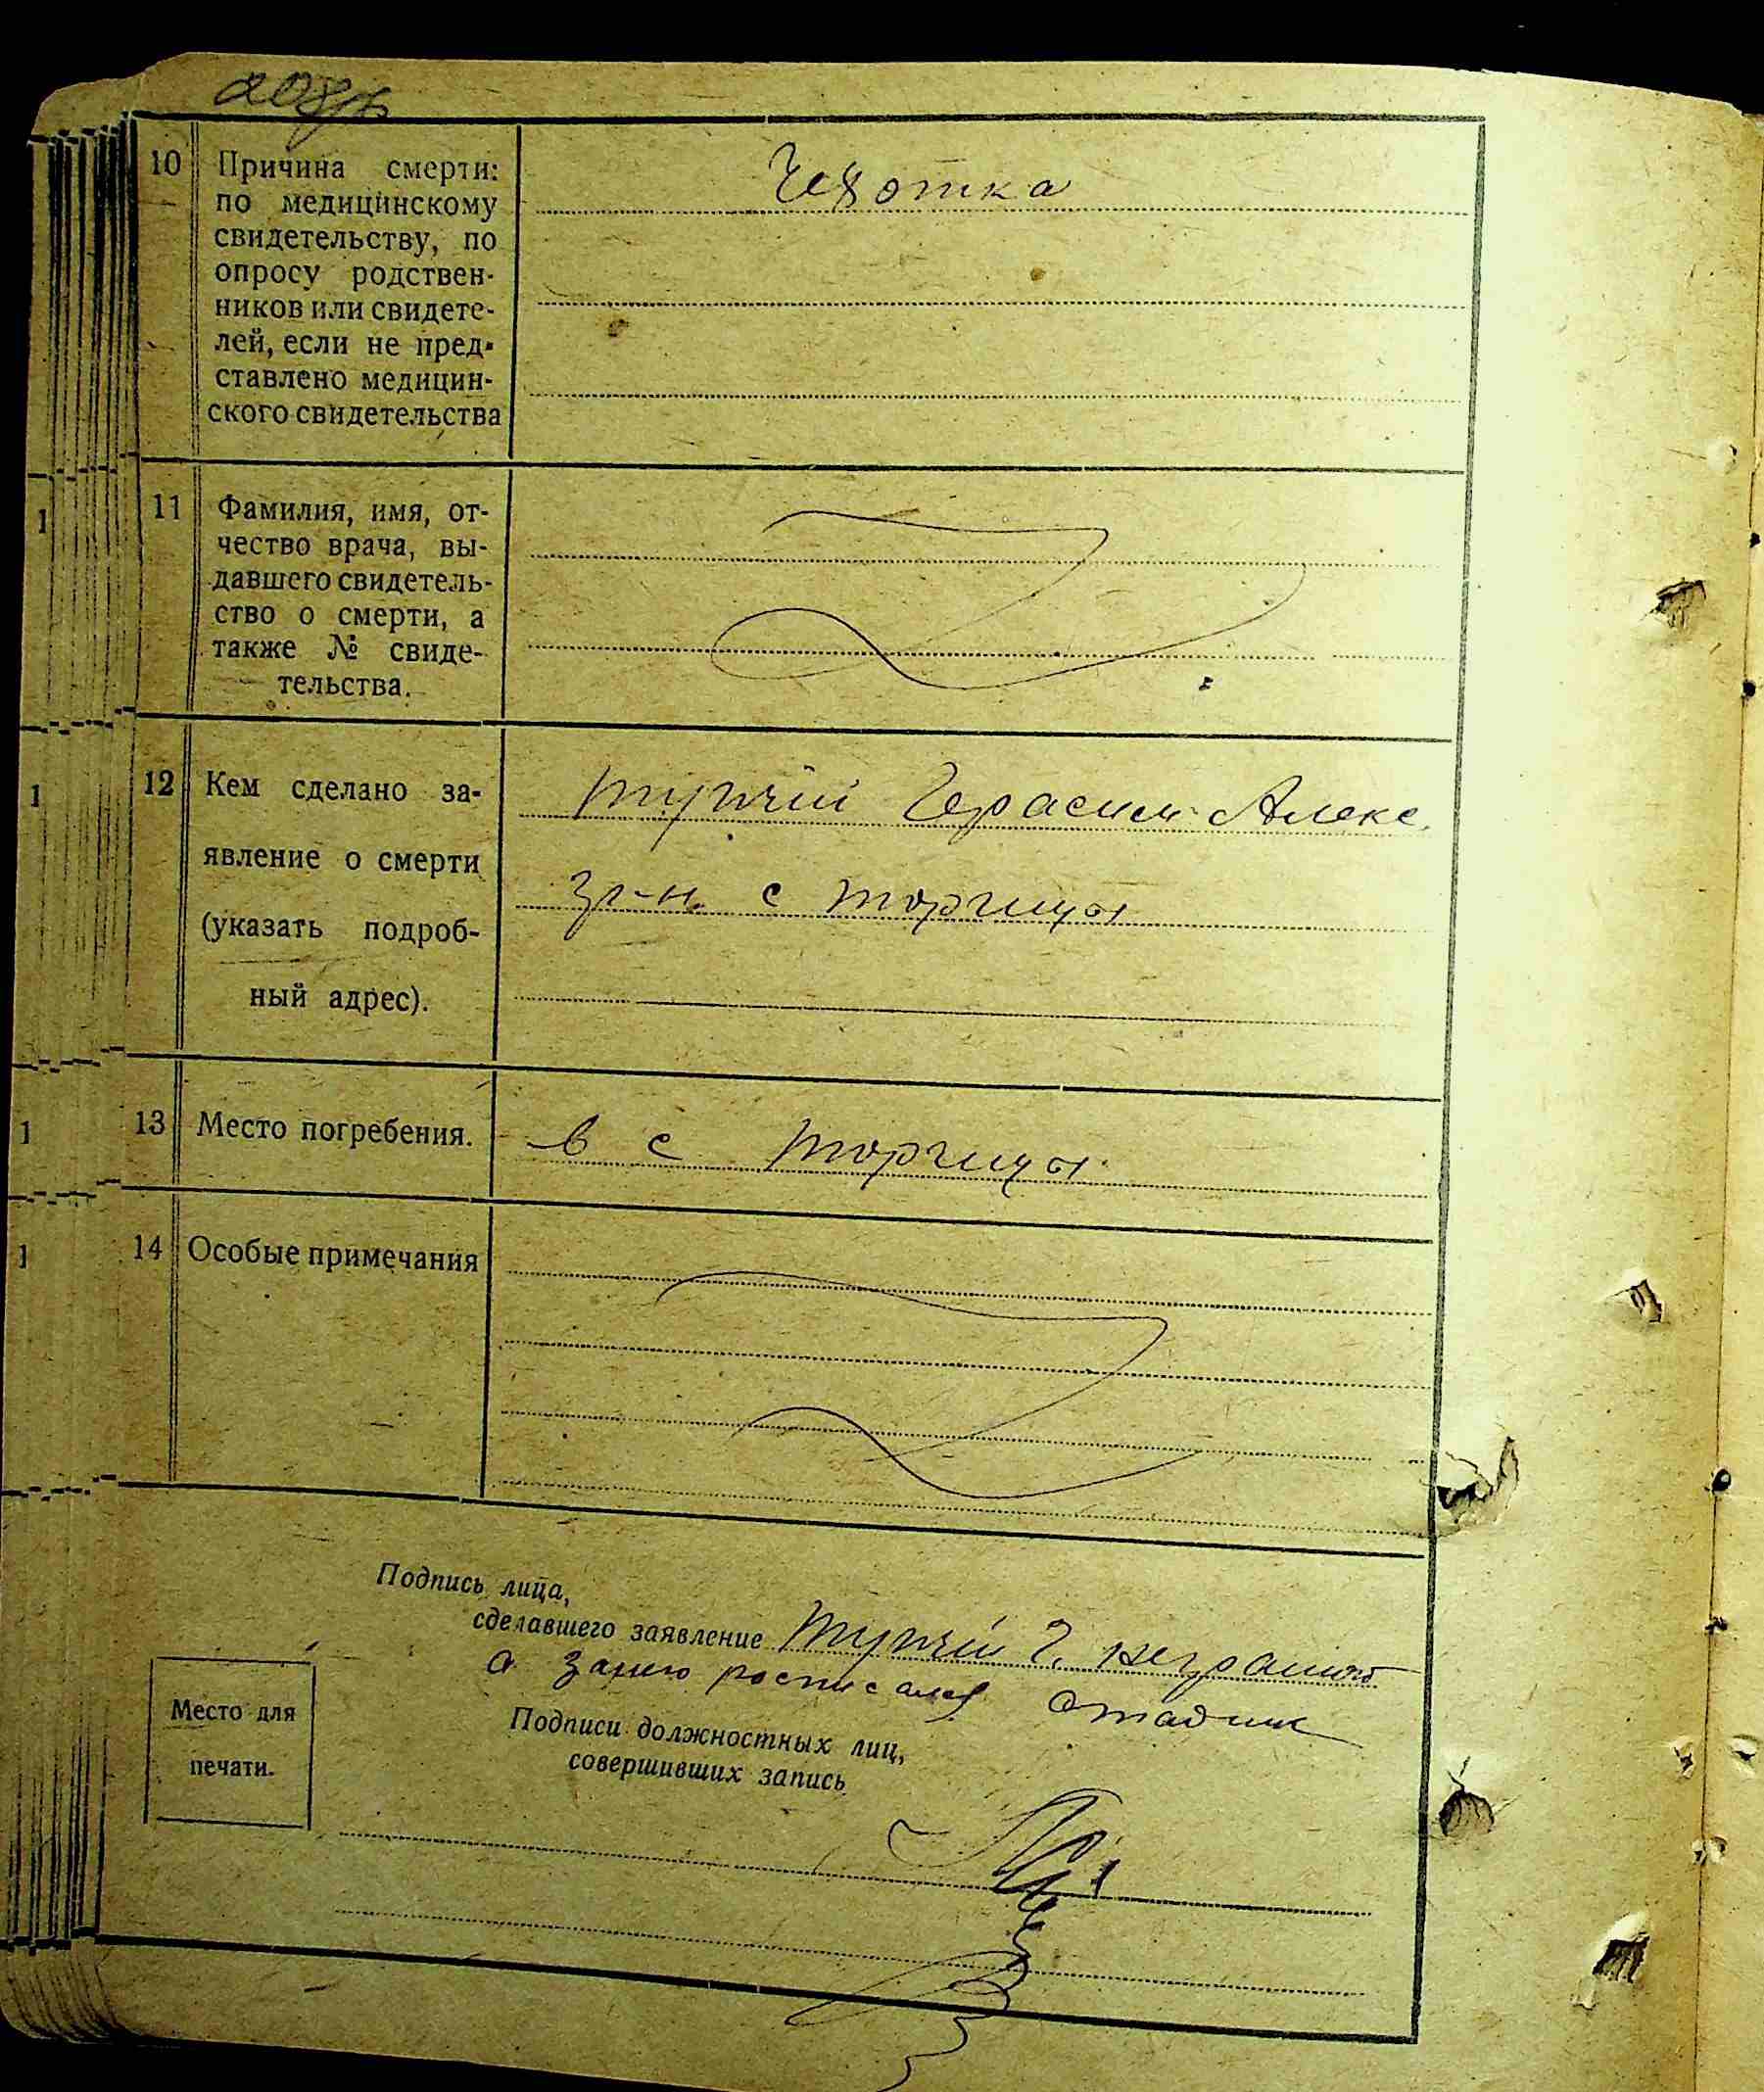 10 Причина смерти:
по медицинскому
свидетельству, по
опросу родствен-
ников или свидете-
лей, если не пред-
ставлено медицин-
ского свидетельства
Чехотка
11 Фамилия, имя, от-
чество врача, вы-
давшего свидетель-
ство о смерти, а
также № свиде-
тельства.
12 Кем сделано за-
явление о смерти
(указать подроб-
ный адрес).
Герасим Алекс.
гр-н с Торгицы
13 Место погребения.
в с Торгицы
14 Особые примечания
Подпись лица,
сделавшего заявление Г. неграмот
а занего росписался
Подписи должностных лиц,
совершивших запись
Место для
печати.
1
1
1
1